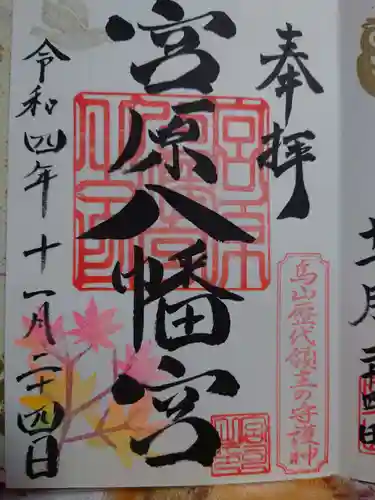 奉拝
宮原八幡宮
烏山歴代領主の守護神
令和四年十一月二十四日